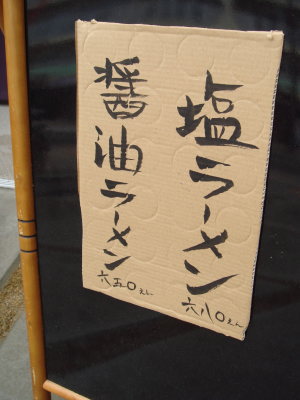 塩ラーメン
六八〇えん
醤油ラーメン
六五〇えん